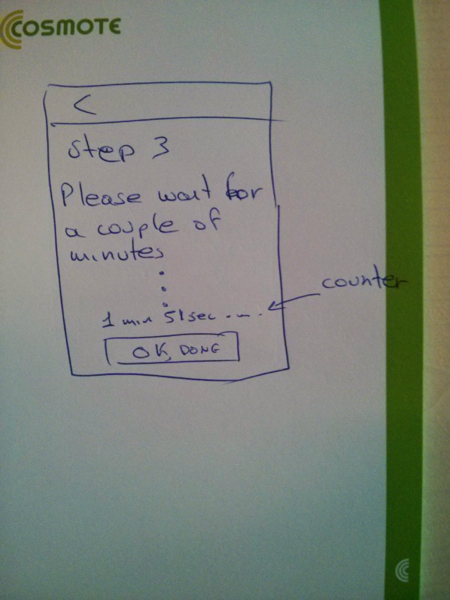 COSMOTE
<
Step 3
Please wait for
a couple of
minutes
1 min 51sec ...
counter
OK, DONE